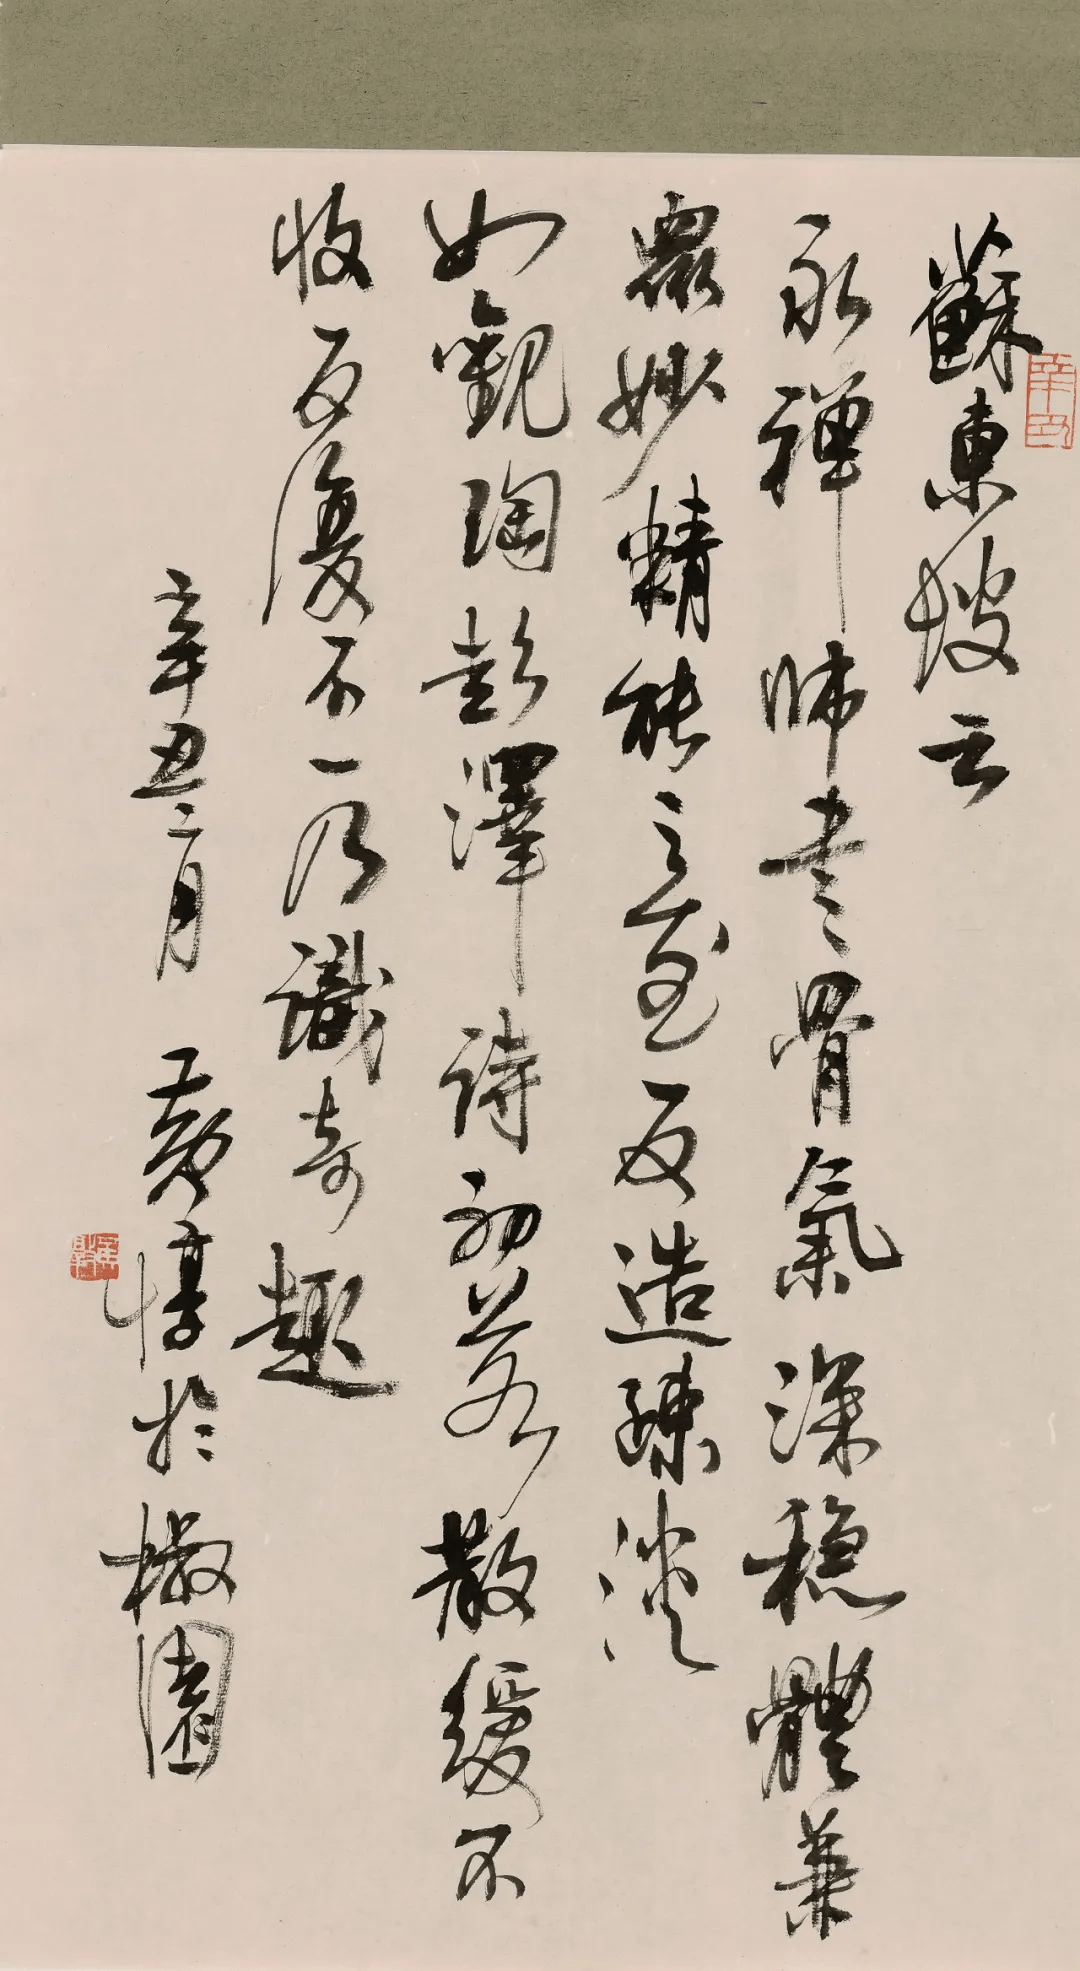 蘇東坡云
永禪師書骨氣深穩體兼
衆妙精能之至反造疎淡
如觀陶彭澤詩初若散緩不
收反復不一乃識奇趣
辛丑二月 黃惇於園
辛丑